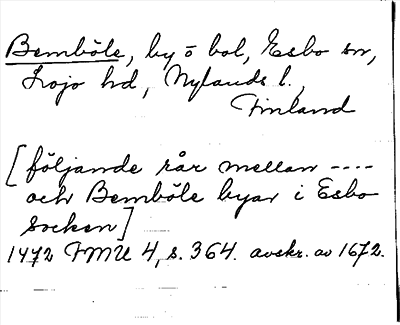 Bemböle, by o bol, Esbo sn,
Lojo hd, Nylands l.,
Finland
[följande rår mellan ----
och Bemböle byar i Esbo
socken]
1472 FMU 4, s. 364. avskr. av 1672.